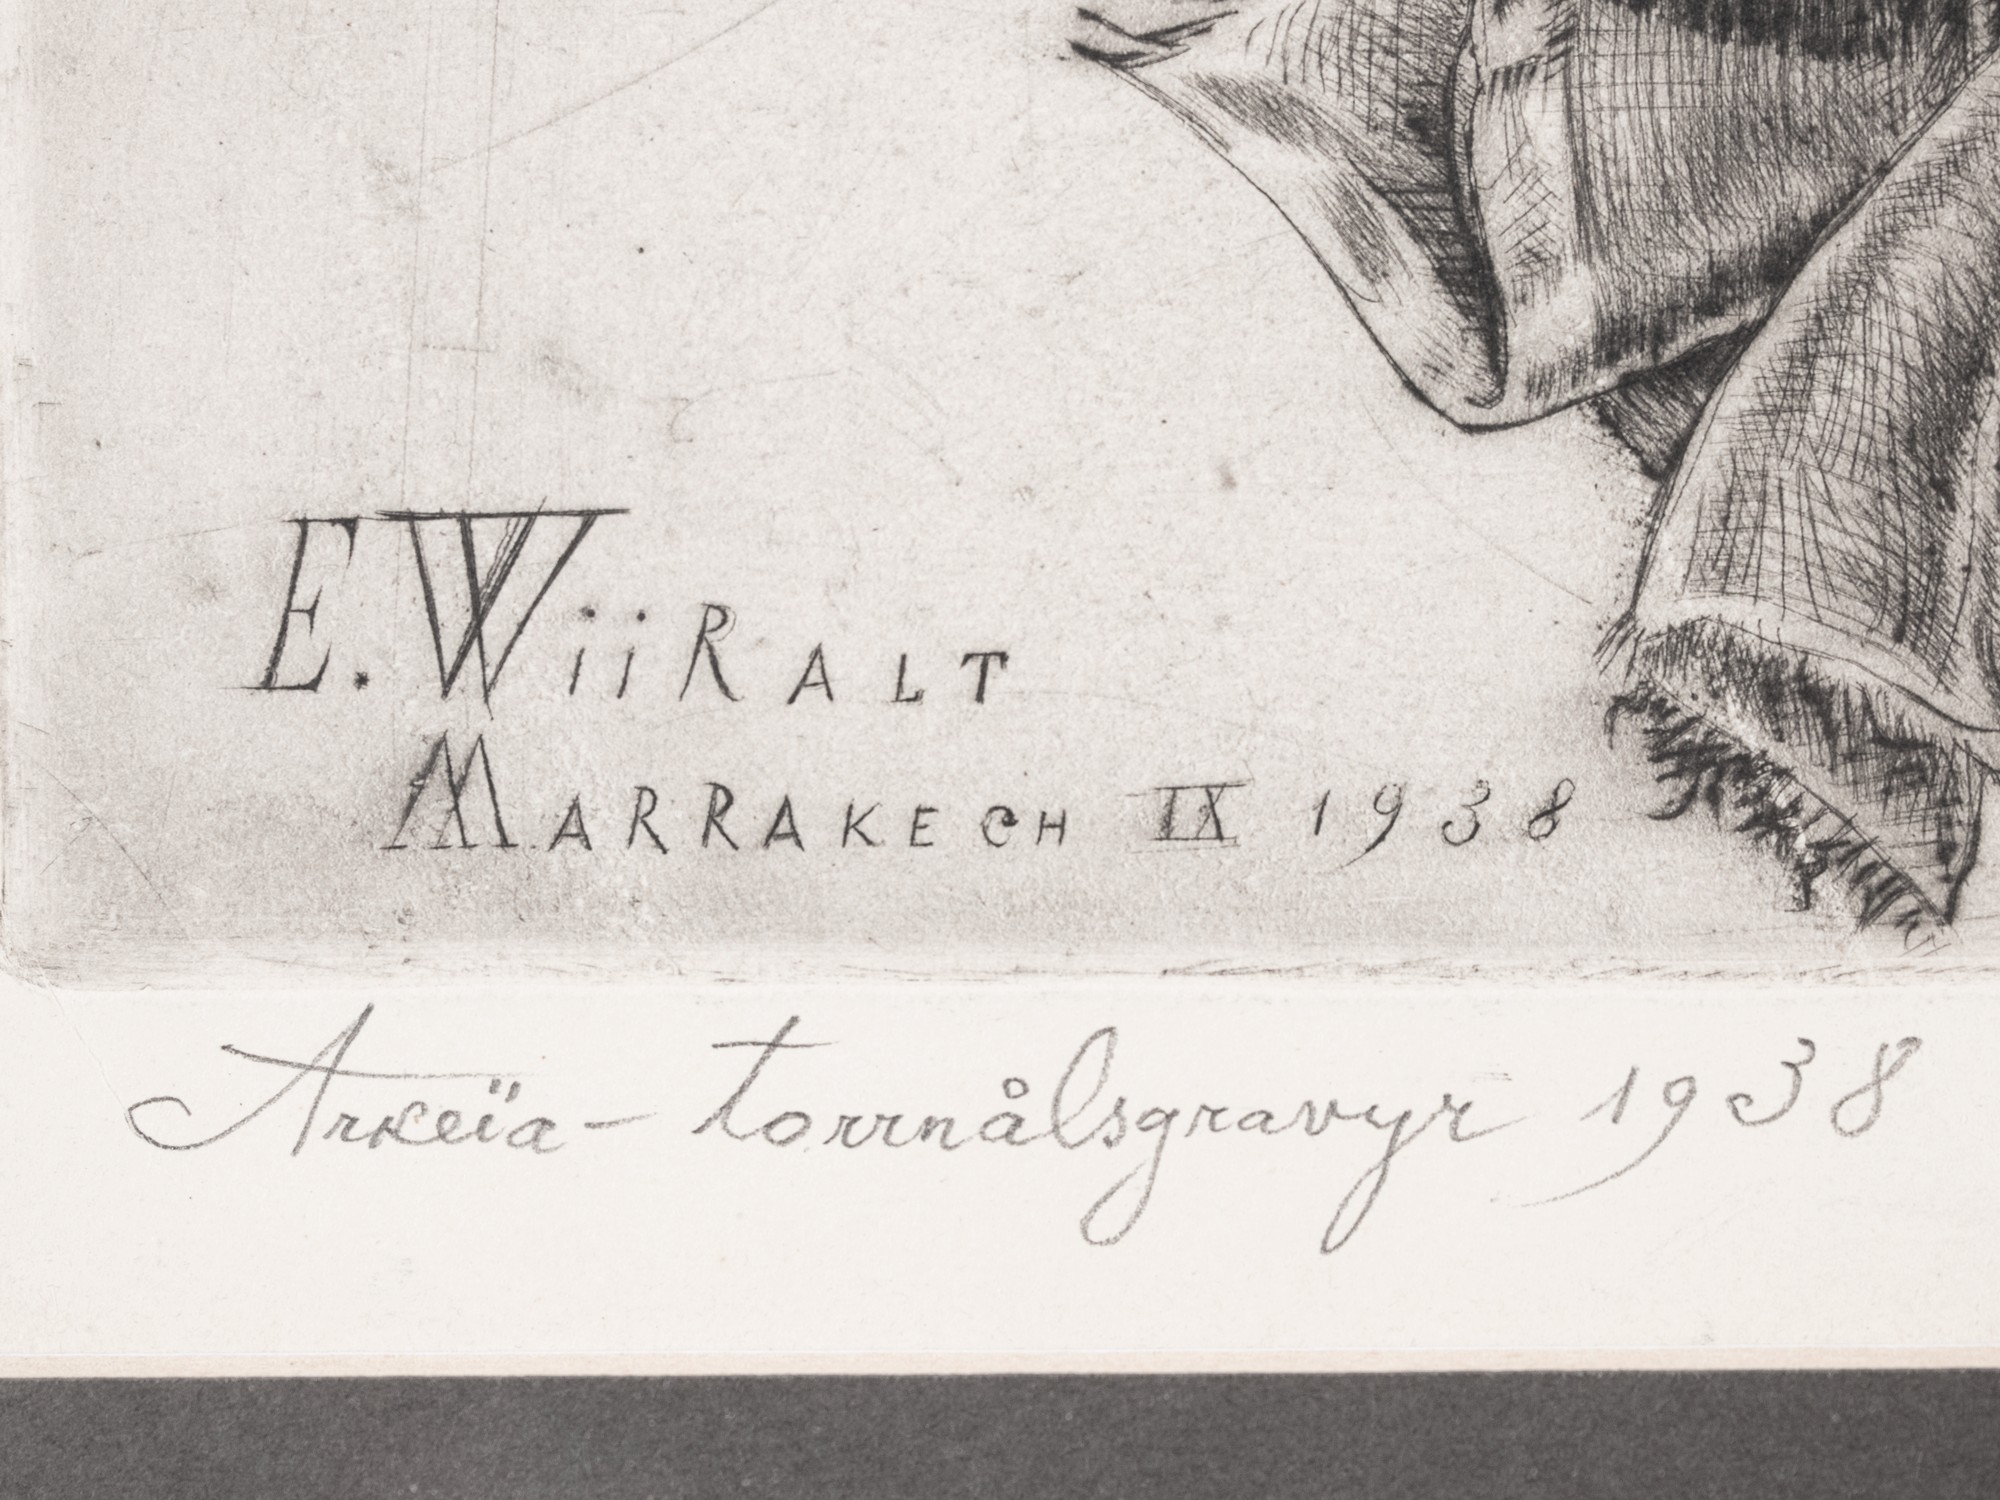 E. WiiRALT
MARRAKECH IX 1938
Arkeïa - torrnålsgravyr 1938